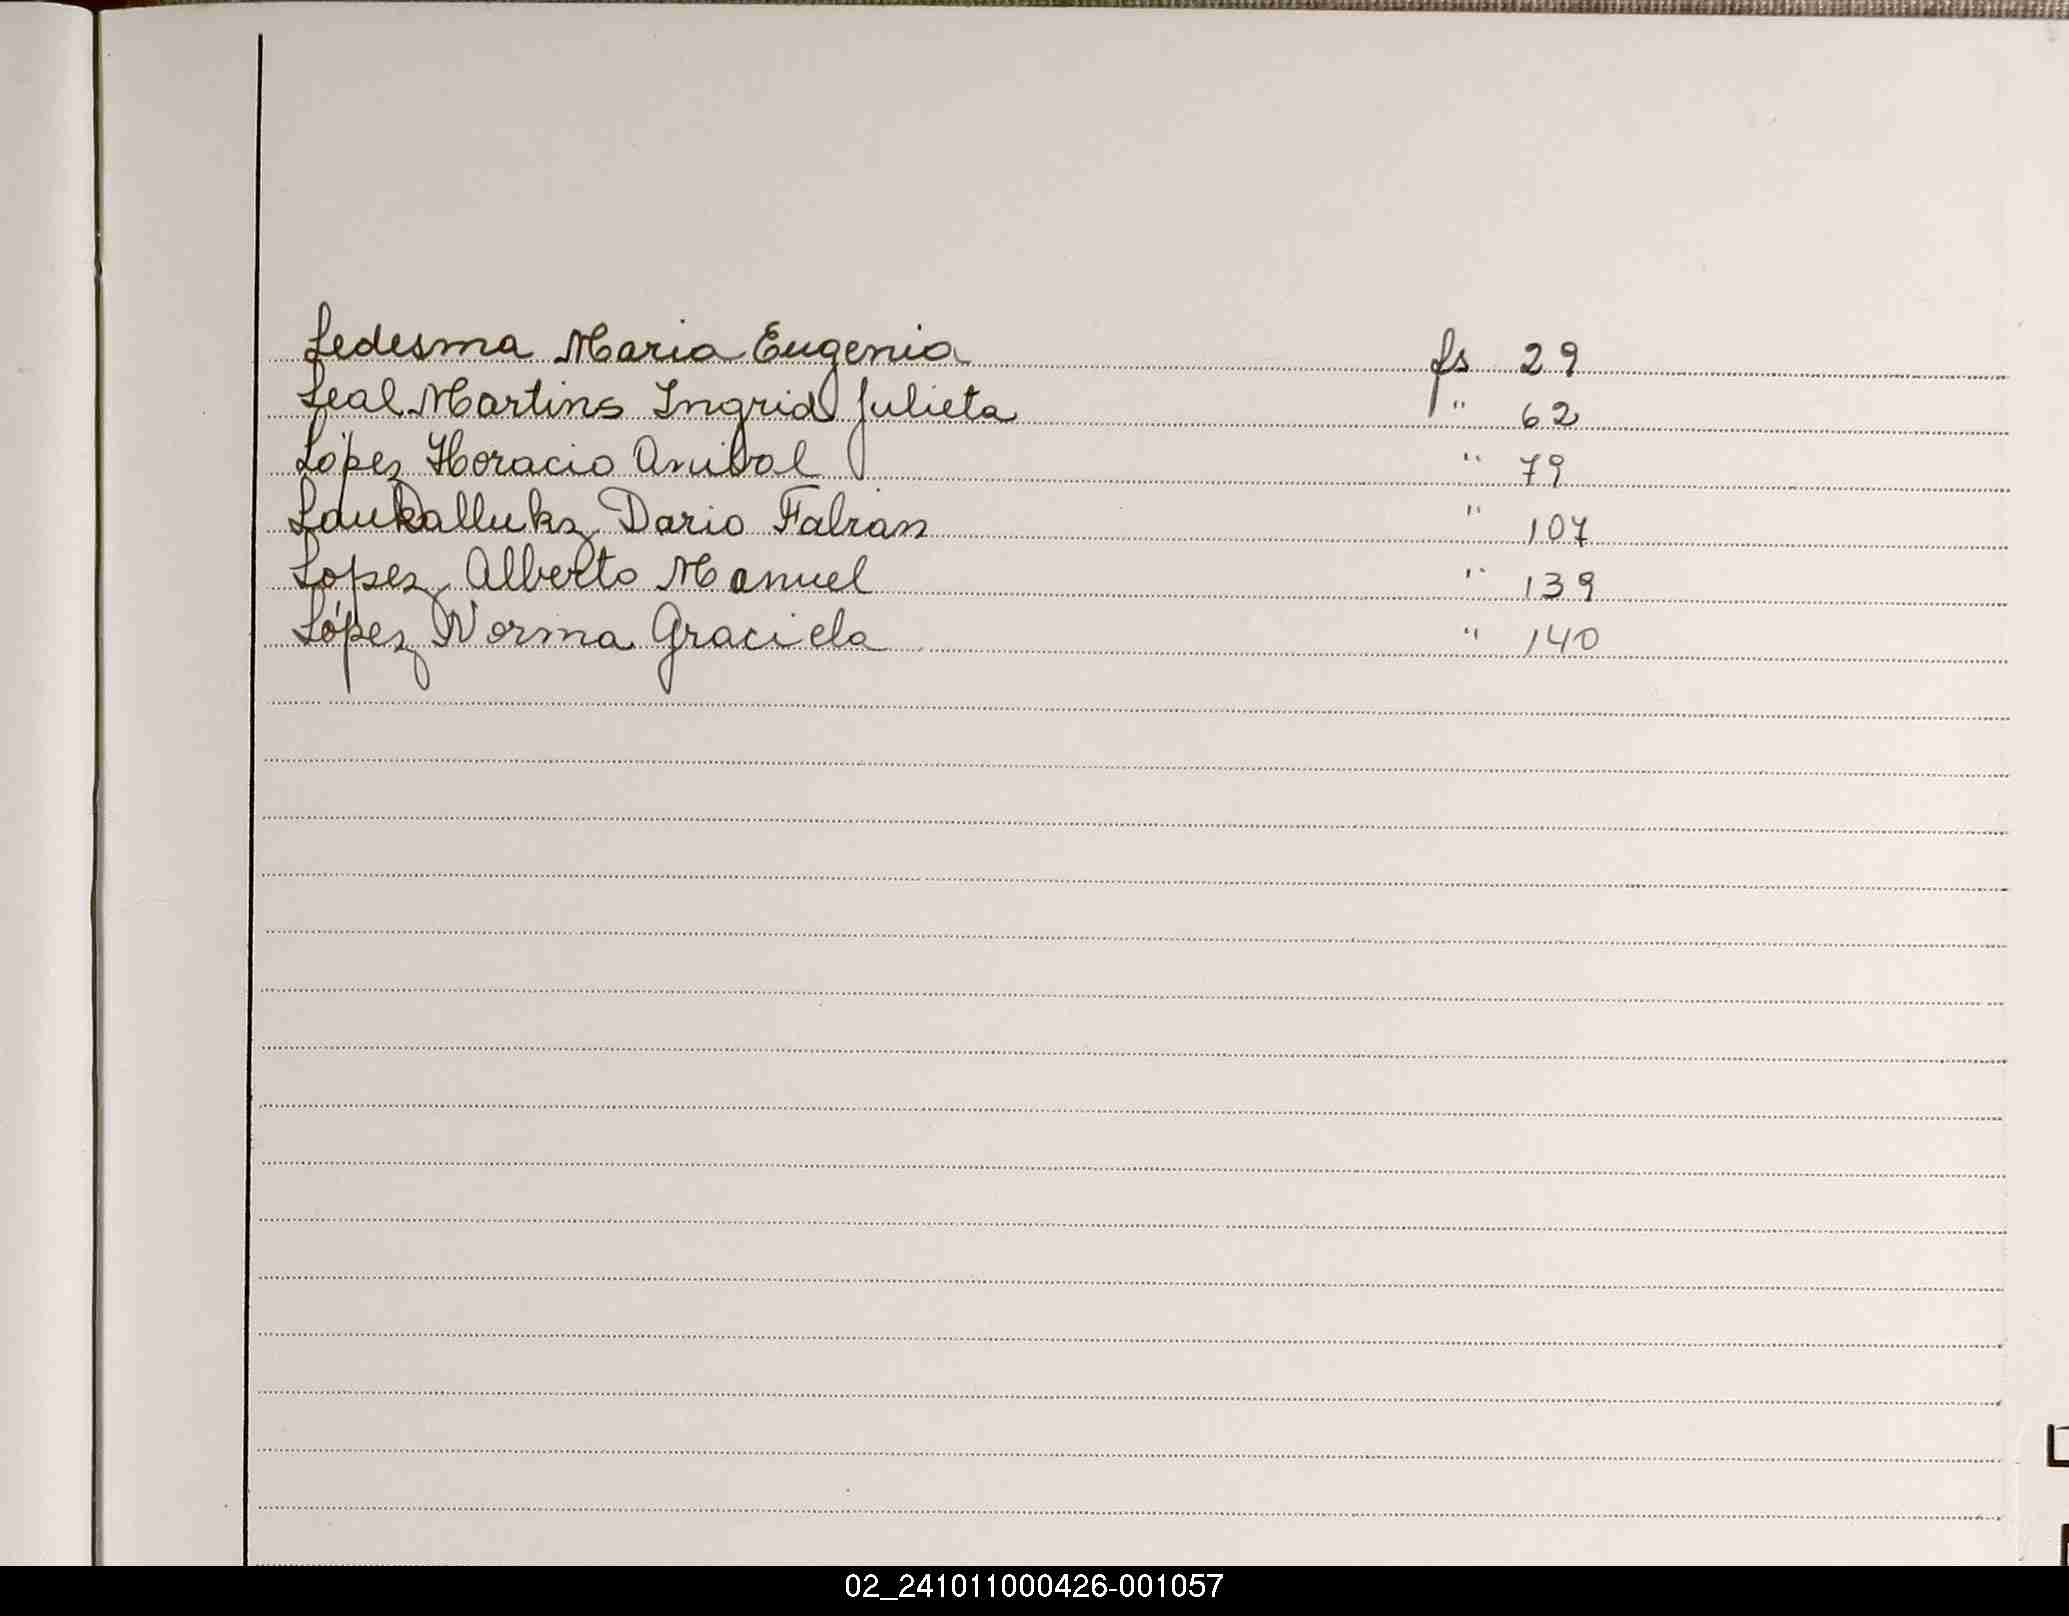 Ledesma Maria Eugenia fs 29
Leal Martins Ingrid Julieta " 62
López Horacio Anibal " 79
Laukallukz Dario Fabian " 107
Lopez Alberto Manuel " 139
López Norma Graciela " 140
02_241011000426-001057